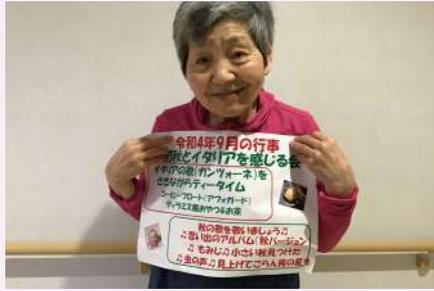 令和4年9月の行事
秋とイタリアを感じる会
イタリアの歌(カンツォーネ)を
ききながらティータイム
コーヒーフロート(アフォガード)
ティラミス風おやつ&お茶
秋の歌を歌いましょう♫
♫思い出のアルバム(秋バージョン
♫もみじ♫小さい秋見つけた
♫虫の声♫見上げてごらん夜の星を